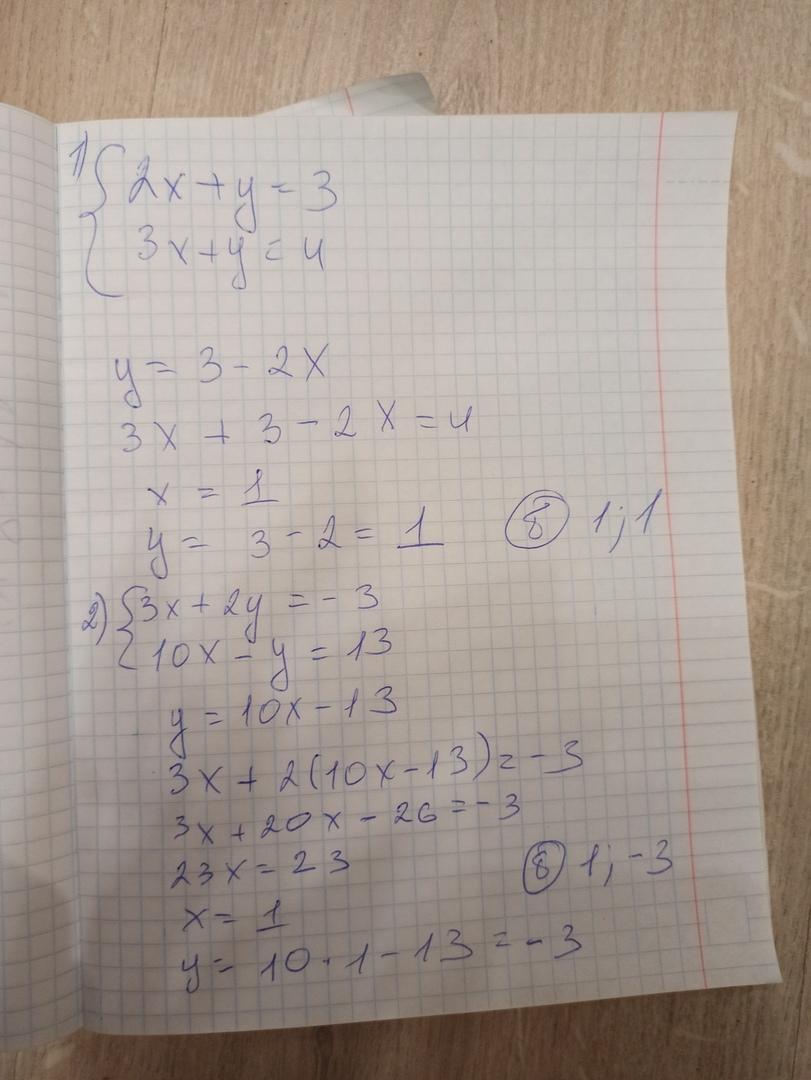 1) { 2x + y = 3
3x + y = 4
y = 3 - 2x
3x + 3 - 2x = 4
x = 1
y = 3 - 2 = 1 8 1; 1
2) { 3x + 2y = -3
10x - y = 13
y = 10x - 13
3x + 2(10x - 13) = -3
3x + 20x - 26 = -3
23x = 23 8 1; -3
x = 1
y = 10 · 1 - 13 = -3